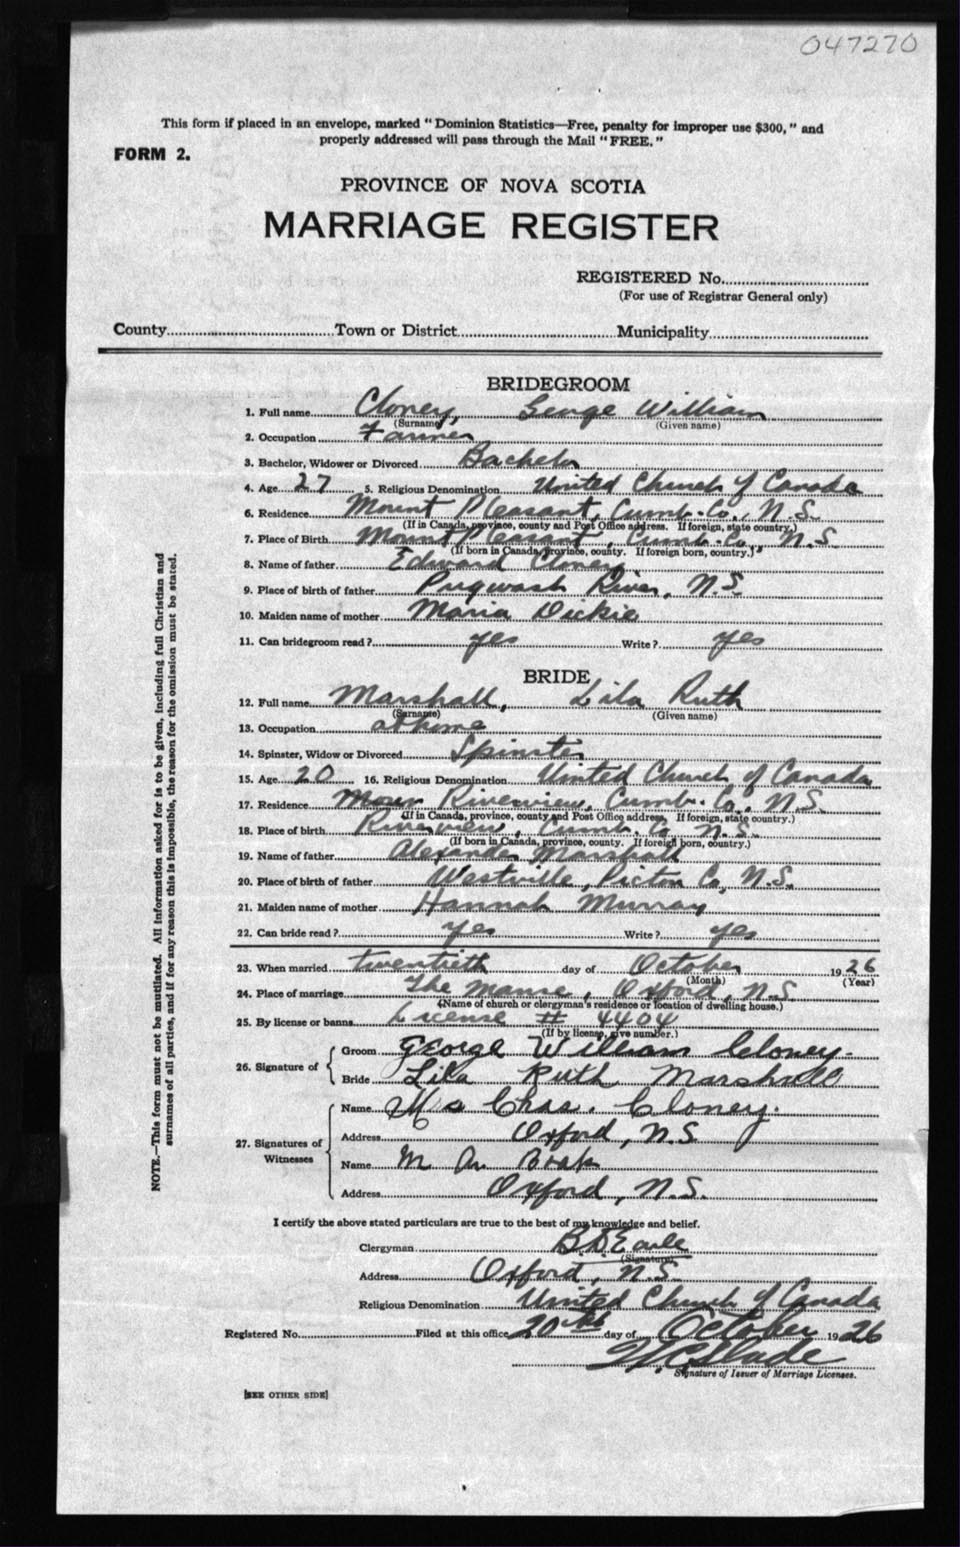 047270
This form if placed in an envelope, marked "Dominion Statistics—Free, penalty for improper use $300," and
properly addressed will pass through the Mail "FREE."
FORM 2.
PROVINCE OF NOVA SCOTIA
MARRIAGE REGISTER
REGISTERED No.
(For use of Registrar General only)
County Town or District Municipality
BRIDEGROOM
1. Full name Cloney, George William
(Surname) (Given name)
2. Occupation Farmer
3. Bachelor, Widower or Divorced Bachelor
4. Age 27 5. Religious Denomination United Church of Canada
6. Residence Mount Pleasant, Cumb. Co., N.S.
(If in Canada, province, county and Post Office address. If foreign, state country.)
7. Place of Birth Mount Pleasant, Cumb. Co. N.S.
(If born in Canada, province, county. If foreign born, country.)
8. Name of father Edward Cloney
9. Place of birth of father Pugwash River, N.S.
10. Maiden name of mother Maria Dickie
11. Can bridegroom read? yes Write? yes
BRIDE
12. Full name Marshall, Lila Ruth
(Surname) (Given name)
13. Occupation at home
14. Spinster, Widow or Divorced Spinster
15. Age 20 16. Religious Denomination United Church of Canada
17. Residence Riverview, Cumb. Co., N.S.
(If in Canada, province, county and Post Office address. If foreign, state country.)
18. Place of birth Riverview, Cumb. Co. N.S.
(If born in Canada, province, county. If foreign born, country.)
19. Name of father Alexander Marshall
20. Place of birth of father Westville, Pictou Co, N.S.
21. Maiden name of mother Hannah Murray
22. Can bride read? yes Write? yes
23. When married twentieth day of October 1926
(Month) (Year)
24. Place of marriage The Manse, Oxford, N.S
(Name of church or clergyman's residence or location of dwelling house.)
25. By license or banns License # 4404
(If by license, give number.)
26. Signature of
Groom George William Cloney.
Bride Lila Ruth Marshall
27. Signatures of Witnesses
Name Chas. Cloney.
Address Oxford, N.S
Name M
Address Oxford, N.S.
I certify the above stated particulars are true to the best of my knowledge and belief.
Clergyman B.D. Earle
(Signature)
Address Oxford, N.S.
Religious Denomination United Church of Canada
Registered No. Filed at this office 20th day of October 1926
Slade
Signature of Issuer of Marriage Licenses.
[SEE OTHER SIDE]
NOTE.—This form must not be mutilated. All information asked for is to be given, including full Christian and
surnames of all parties, and if for any reason this is impossible, the reason for the omission must be stated.